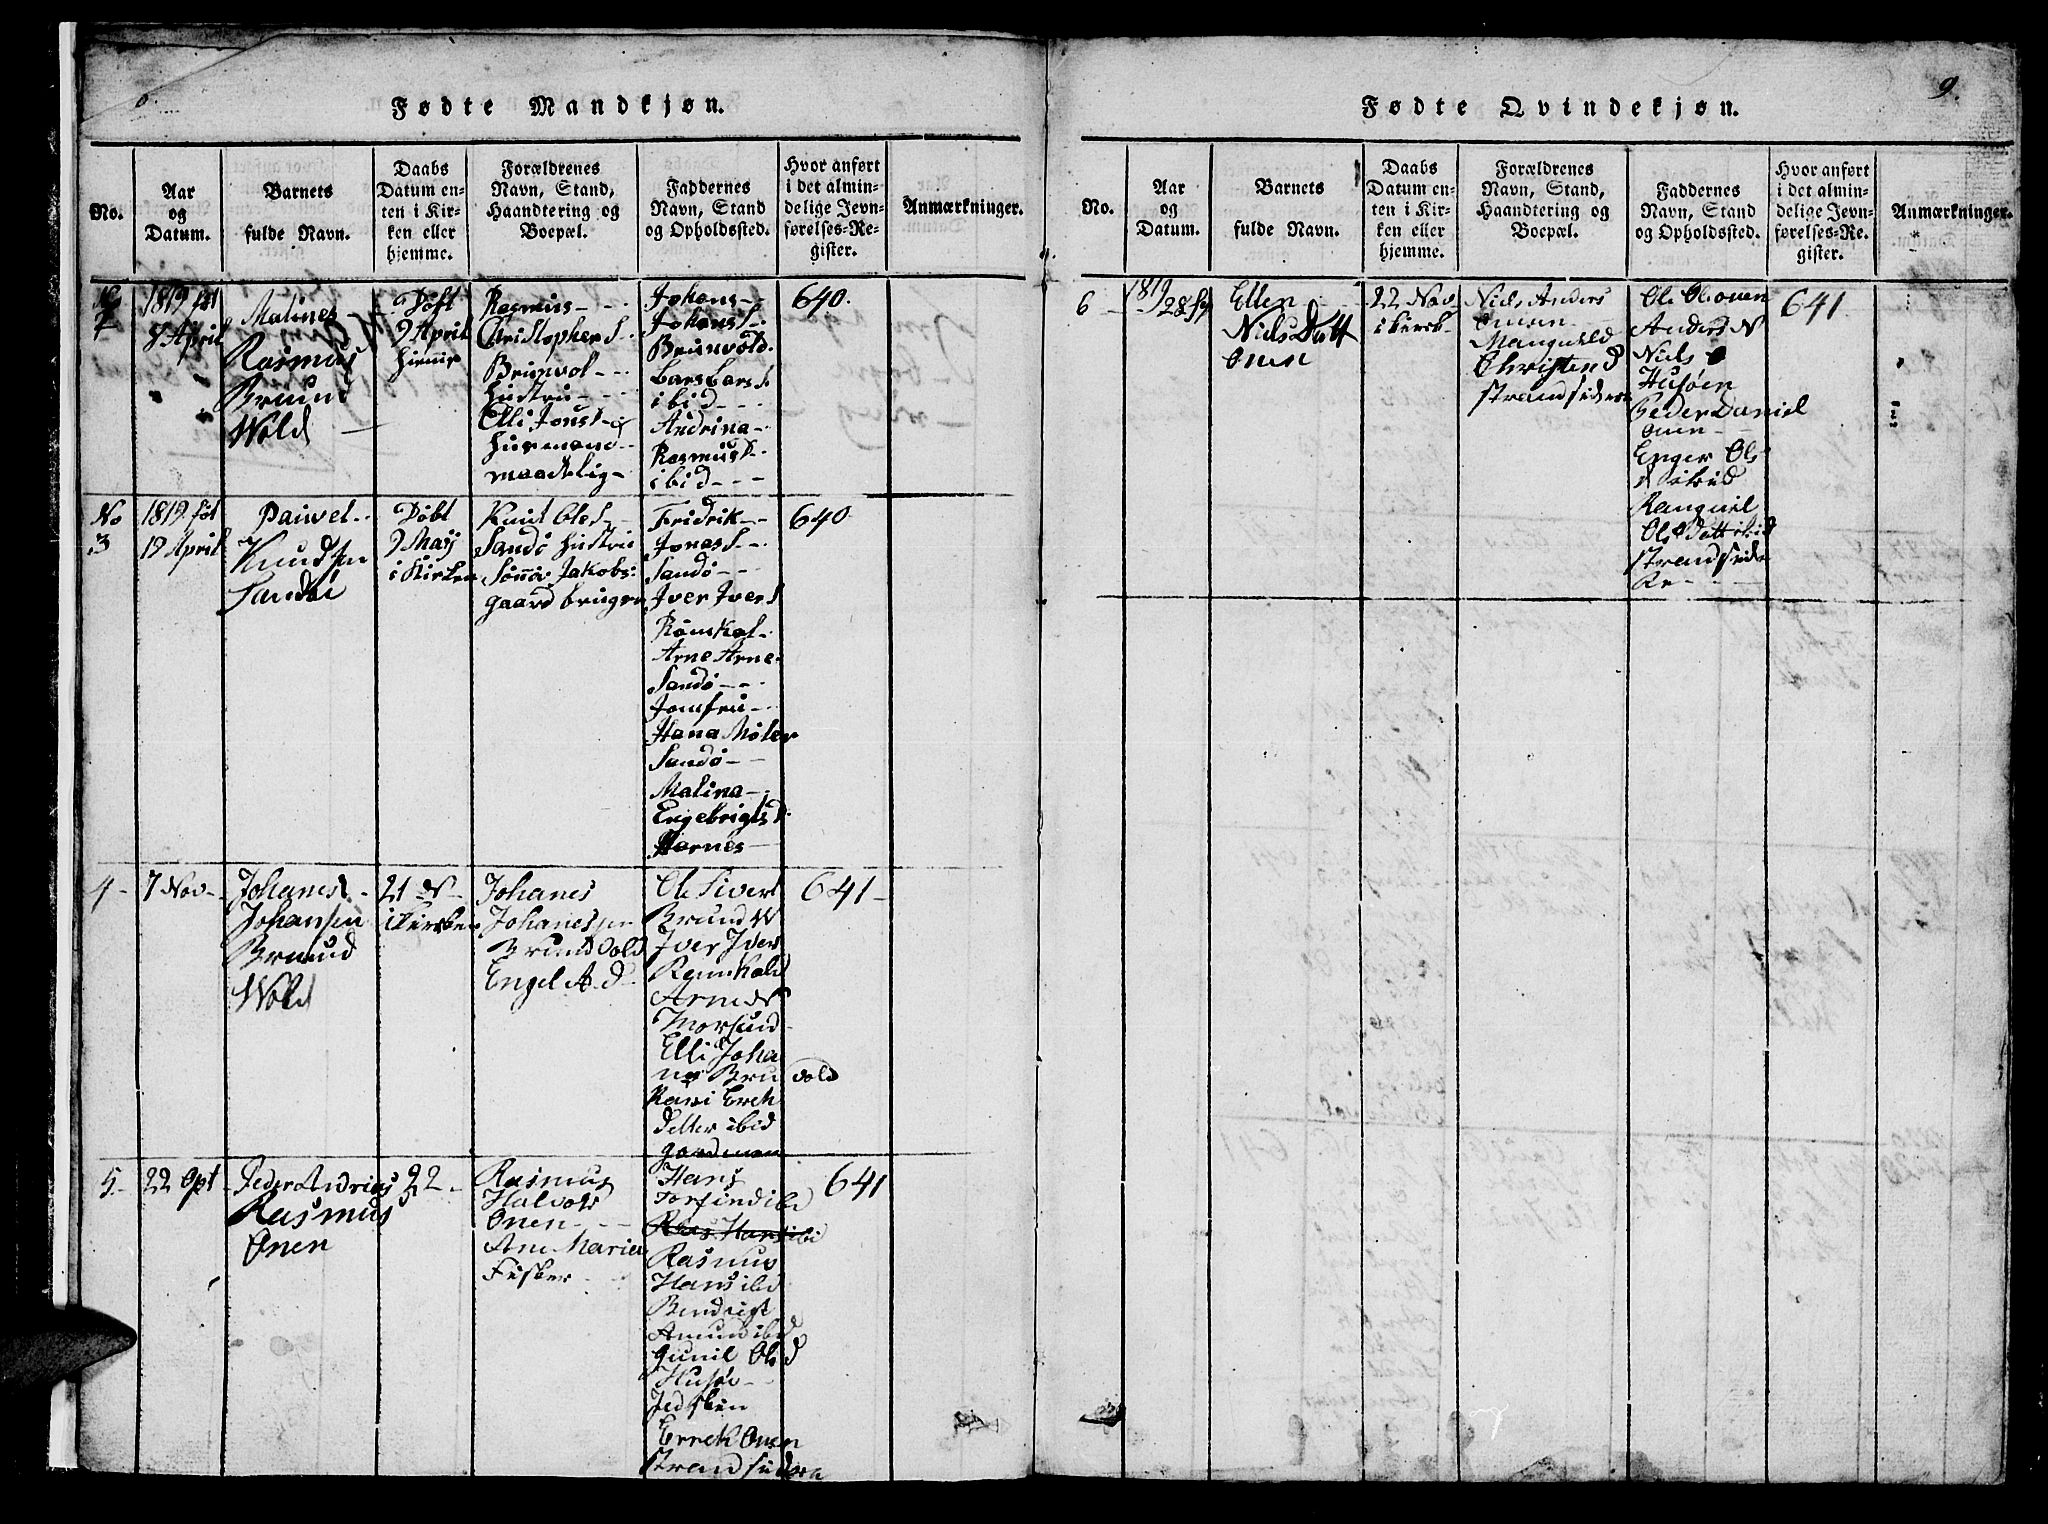 Fødte Mandkjøn.
No.
Aar
og
Datum.
Barnets
fulde Navn.
Daabs
Datum en-
ten i Kir-
ken eller
hjemme.
Forældrenes
Navn, Stand,
Haandtering og
Boepæl.
Faddernes
Navn, Stand
og Opholdssted.
Hvor anført
i det almin-
delige Jevn-
førelses-Re-
gister.
Anmærkninger.
No
2
1819 föt
8 April
Malines
Rasmus
Bruund
Wold
Döbt
9 April
himie
Rasmus
Christophers
Brunvol
Hustru
Elli Jonsd
Husmand
maadelig
Johans
Johans S.
Brunvold
Lars Lars S
ibid
Andrina
Rasmusd.
ibid
640.
No
3
1819 föt
19 April
Pauvel
Knudsen
Sandöi
Döbt
9 Maij
i Kirken
Knud Oles
Sandö Hustru
Sönöv Jakobs
gaard bruger
Fridrik
Jonas S
Sandö
Iver Ivers
Römkol
Arne Arne
Sandö
Jomfru
Hana Möler
Sandö
Malina
Engebrigtsd.
Harnes
640
4
7 Nov
Johanes
Johansen
Bruund
Wold
21 N
i Kersken
Johanes
Johanessen
Brundvold
Engel A.d
Ole Sivert
Brund W
Iver Iver
Remkold
Arne N
Morsund
Elli Joha
nes Bru vold
Kari Erek
Detter ibid
gardman
641
5
22 Opt
Peder Andrias
Rasmus
Onen
22
Rasmus
Halvors
Onen
Ane Maria
Fisker
Hans
Torfind ibi
Ras. Hans ibi
Rasmus
Hans ibid
Bendrigt
Amund ibid
Gunil Olsd
Husöv
Jedsken
Errek Onen
strandsidere
641
Fødte Qvindekjøn.
9.
No.
Aar
og
Datum.
Barnets
fulde Navn.
Daabs
Datum en-
ten i Kir-
ken eller
hjemme.
Forældrenes
Navn, Stand,
Haandtering og
Boepæl.
Faddernes
Navn, Stand
og Opholdssted.
Hvor anført
i det almin-
delige Jevn-
førelses-Re-
gister.
Anmærkninger.
6
1819
28
Ellen
Niels Datt
Onen
22 Nov
i kersk
Niels Anders
Onen
Christen d
strandsidere
Ole Ol onen
Anders N
Niels
Husöen
Peder Daniel
onen
Enger Ols
d ibid
Rangnil
Ols Datt ibid
strandside
Re
641